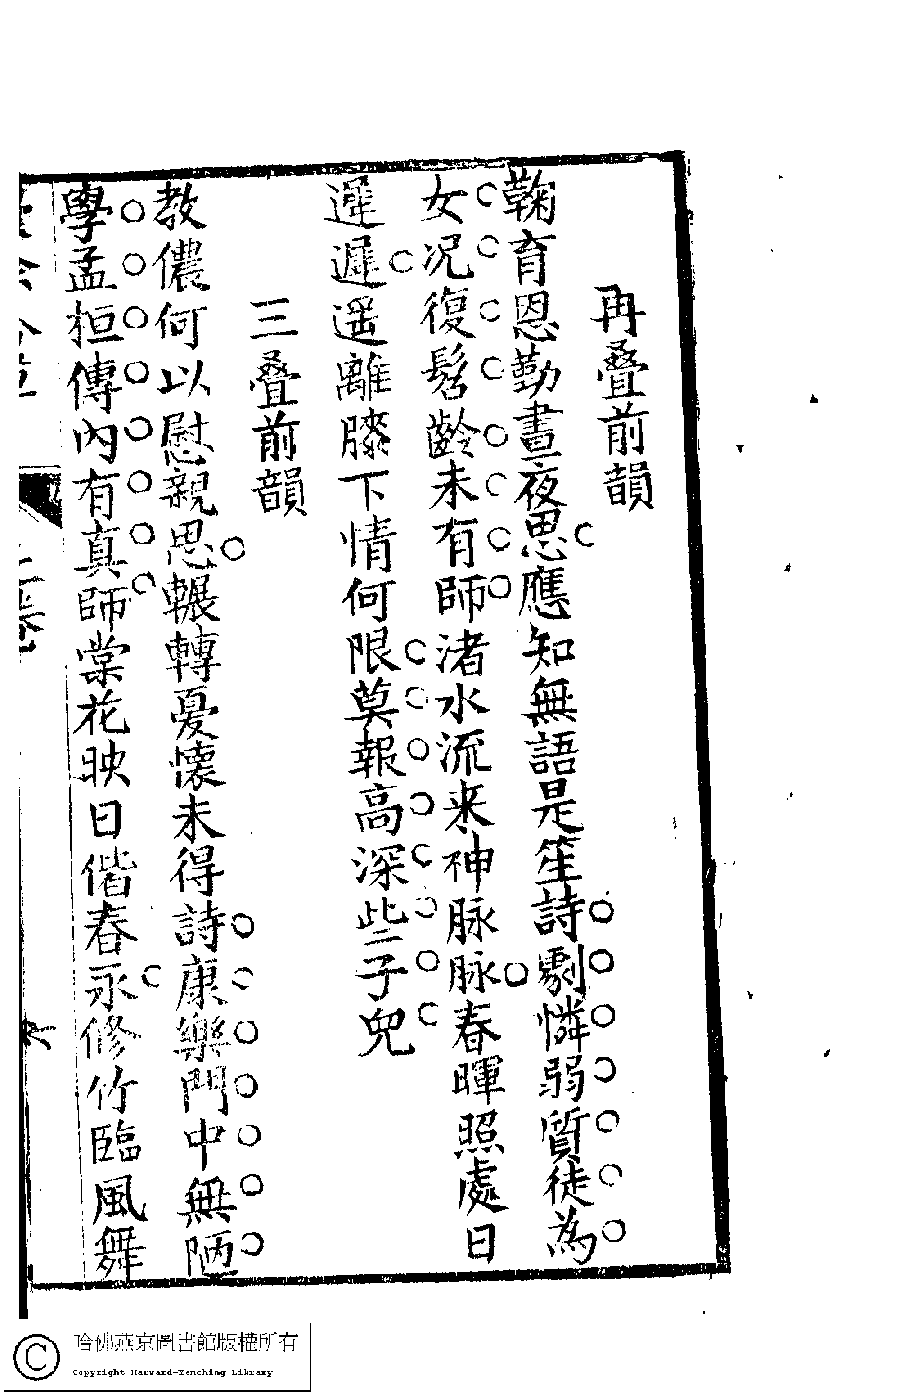 再叠前韻
鞠育恩勤晝夜思應知無語是笙詩劇憐弱質徒為
女况復髫齡未有師渚水流来神脉脉春暉照處日
遲遲遥離膝下情何限莫報高深些子兒
三叠前韻
教儂何以慰親思輾轉憂懷未得詩康樂門中無陋
學孟桓傳內有真師棠花映日偕春永修竹臨風舞
哈佛燕京圖書館版權所有
Copyright Harvard-Yenching Library